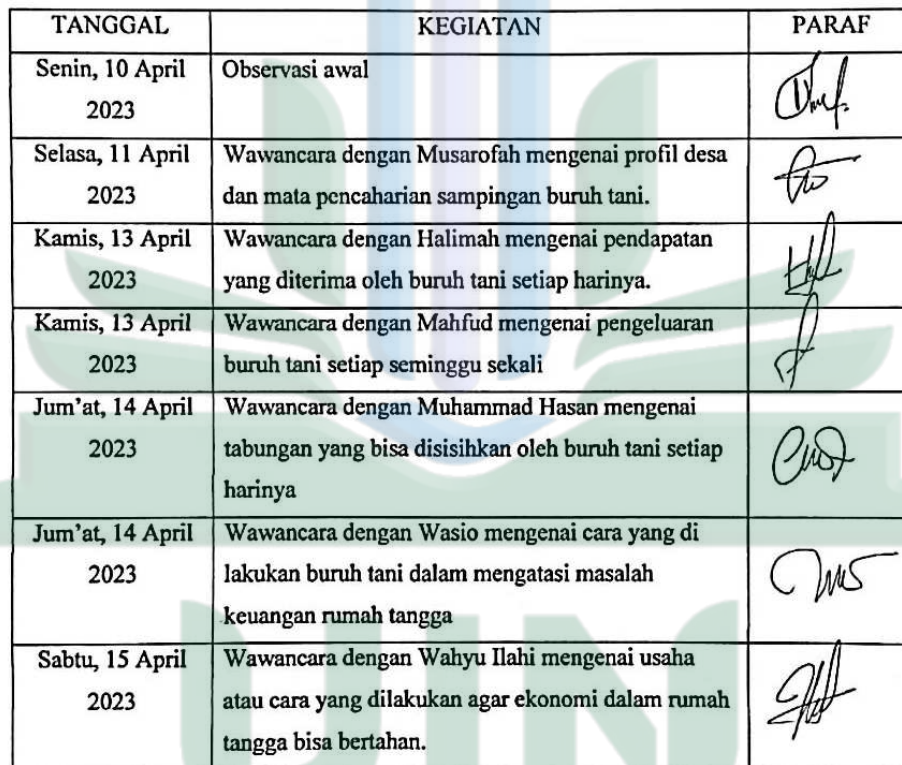 TANGGAL KEGIATAN PARAF
Senin, 10 April Observasi awal
2023
Selasa, 11 April Wawancara dengan Musarofah mengenai profil desa
2023 dan mata pencaharian sampingan buruh tani.
Kamis, 13 April Wawancara dengan Halimah mengenai pendapatan
2023 yang diterima oleh buruh tani setiap harinya.
Kamis, 13 April Wawancara dengan Mahfud mengenai pengeluaran
2023 buruh tani setiap seminggu sekali
Jum'at, 14 April Wawancara dengan Muhammad Hasan mengenai
2023 tabungan yang bisa disisihkan oleh buruh tani setiap
harinya
Jum'at, 14 April Wawancara dengan Wasio mengenai cara yang di
2023 lakukan buruh tani dalam mengatasi masalah
keuangan rumah tangga
Sabtu, 15 April Wawancara dengan Wahyu Ilahi mengenai usaha
2023 atau cara yang dilakukan agar ekonomi dalam rumah
tangga bisa bertahan.
UIN